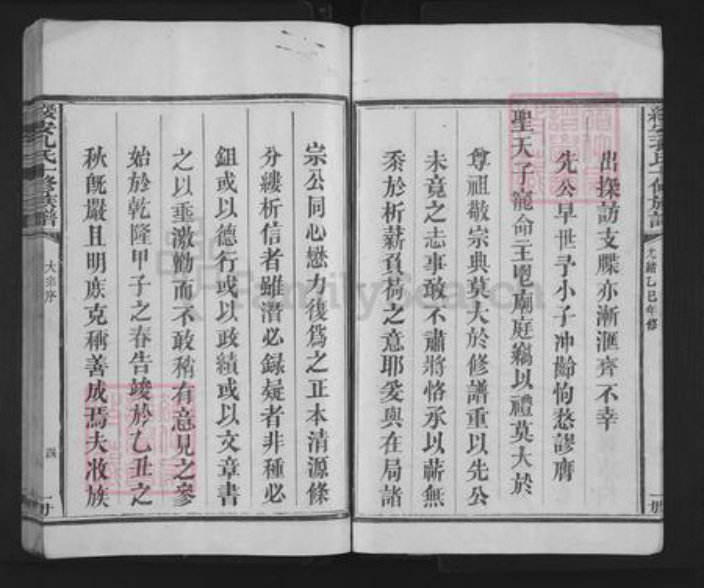 綏安孔氏一修族譜
光緒乙巳年修
一册
出探訪支牒亦漸滙齊不幸
先公早世予小子冲齡恂愁謬膺
聖天子寵命主鬯廟庭竊以禮莫大於
尊祖敬宗典莫大於修譜重以先公
未竟之志事敢不肅將恪承以蘄無
忝於析薪負荷之意耶爰與在局諸
宗公同心懋力復爲之正本清源條
分縷析信者雖潛必録疑者非種必
鉏或以德行或以政績或以文章書
之以垂激勸而不敢稍有意見之參
始於乾隆甲子之春告竣於乙丑之
秋既嚴且明庶克稱善成焉夫收族
綏安孔氏一修族譜
大宗序
四
一册
FamilySearch